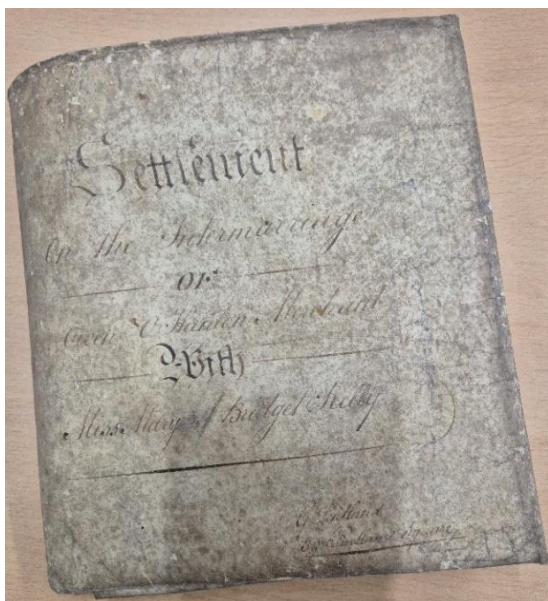 Settlement
On the Intermarriage
OF
Owen O'Hanlon Merchant
With
Miss Mary Bridget Kelly
Square